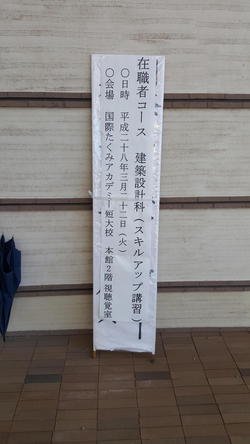 在職者コース 建築設計科(スキルアップ講習)
〇日時 平成二十八年三月二十二日(火)
〇会場 国際たくみアカデミー短大校 本館2階 視聴覚室